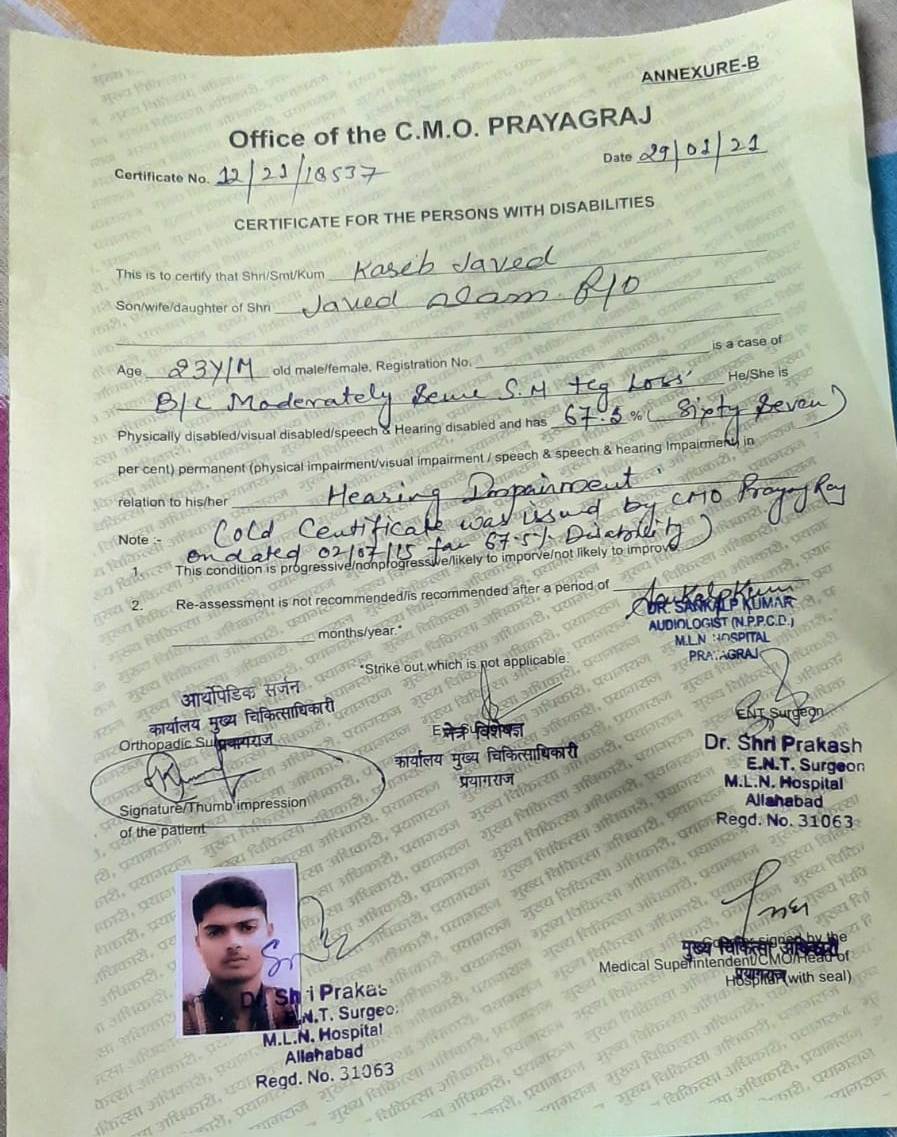 ANNEXURE-B
Office of the C.M.O. PRAYAGRAJ
Certificate No. 12/21/18537
Date 29/01/21
CERTIFICATE FOR THE PERSONS WITH DISABILITIES
This is to certify that Shri/Smt/Kum Kaseb Javed
Son/wife/daughter of Shri Javed Alam R/O
Age 23Y/M old male/female, Registration No. is a case of
B/L Moderately S.N Loss He/She is
Physically disabled/visual disabled/speech & Hearing disabled and has 67.5 % ( Sixty Seven )
per cent) permanent (physical impairment/visual impairment / speech & speech & hearing Impairment) in
relation to his/her Hearing Impairment
Note :- (Old Centificate was issued by CMO Prayag Raj
on dated 02/07/15 for 67.5% Disability)
1. This condition is progressive/nonprogressive/likely to imporve/not likely to improve
2. Re-assessment is not recommended/is recommended after a period of
months/year.*
DR. SANKALP KUMAR
AUDIOLOGIST (N.P.P.C.D.)
M.L.N HOSPITAL
PRAYAGRAJ
*Strike out which is not applicable.
आर्थोपेडिक सर्जन
कार्यालय मुख्य चिकित्साधिकारी
Orthopadic प्रयागराज
नेत्र विशेषज्ञ
कार्यालय मुख्य चिकित्साधिकारी
प्रयागराज
ENT Surgeon
Dr. Shri Prakash
E.N.T. Surgeon
M.L.N. Hospital
Allahabad
Regd. No. 31063
Signature/Thumb impression
of the patient
मुख्य चिकित्सा अधिकारी
प्रयागराज
signed by the
Medical Superintendent/CMO/Head of
Hospital (with seal)
Dr. Shri Prakas
E.N.T. Surgeo
M.L.N. Hospital
Allahabad
Regd. No. 31063